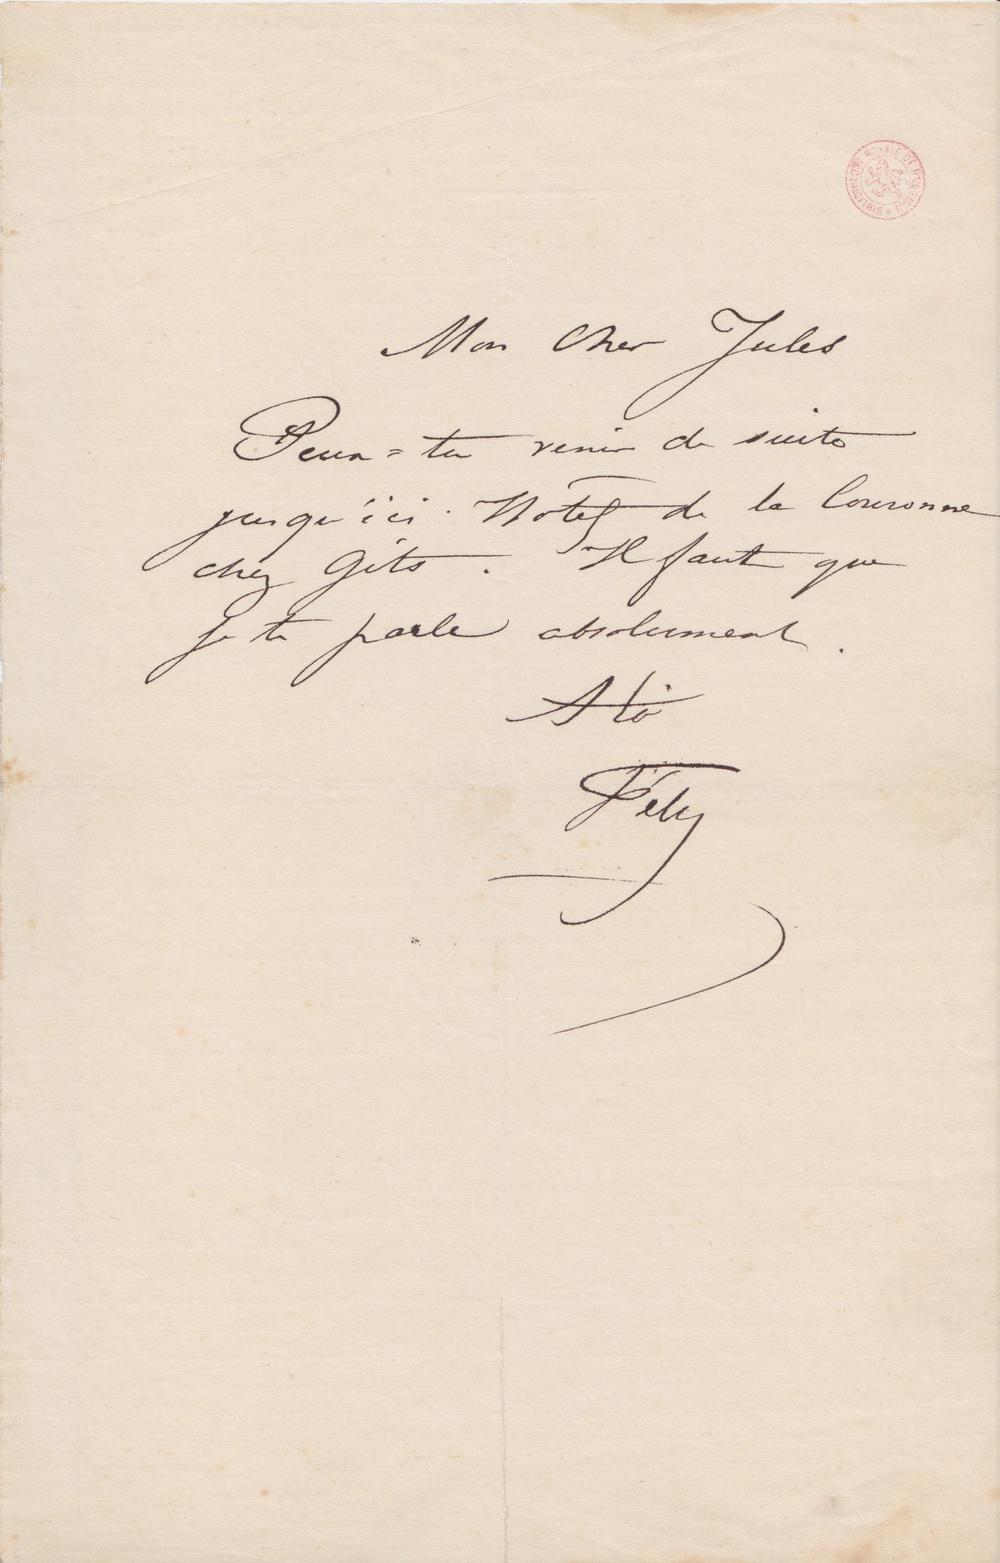 BIBLIOTHÈQUE ROYALE DE BELGIQUE
Mon Cher Jules
Peux=tu venir de suite
jusqu'ici. Hotel de la Couronne
chez Gits. Il faut que
je te parle absolument.
A toi
Fély